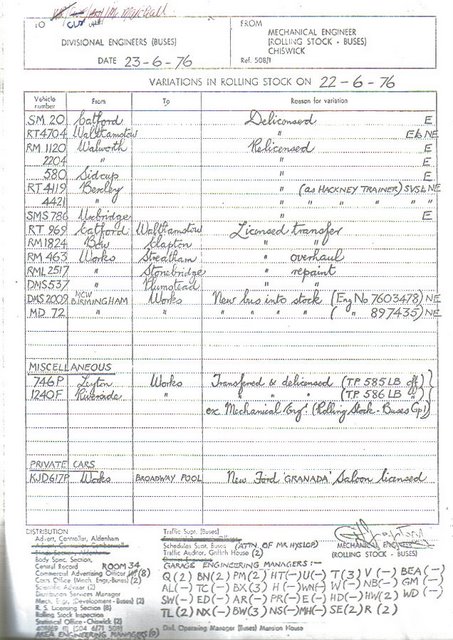 TO
DIVISIONAL ENGINEERS (BUSES)
DATE 23-6-76
FROM
MECHANICAL ENGINEER
(ROLLING STOCK - BUSES)
CHISWICK
Ref. 508/1
VARIATIONS IN ROLLING STOCK ON 22-6-76
Vehicle number From To Reason for variation
SM 20 Catford Delicensed E
RT4704 Walthamstow " Eb NE
RM 1120 Walworth Relicensed E
2204 " " E
580 Sidcup " E
RT 4119 Bexley " (as HACKNEY TRAINER) SVSL NE
4421 " " " " " " "
SMS 786 Uxbridge " E
RT 969 Catford Walthamstow Licensed transfer
RM1824 Bow Clapton " "
RM 463 Works Streatham " overhaul
RML 2517 " Stonebridge " repaint
DMS537 " Plumstead " "
DMS2009 MCW BIRMINGHAM Works New bus into stock (Eng No 7603478) NE
MD 72 " " " " " " ( " 897435) NE
MISCELLANEOUS
746P Leyton Works Transferred & delicensed (T.P. 585 LB off)
1240F Riverside " " " " (T.P. 586 LB " )
ex. Mechanical Eng. (Rolling Stock - Buses Gp)
PRIVATE CARS
KJD617P Works BROADWAY POOL New Ford 'GRANADA' Saloon licensed
DISTRIBUTION
Advert. Controller, Aldenham
Body Spec. Section,
Central Record ROOM 34
Commercial Advertising Officer (8)
Cars Office (Mech. Engr-Buses) (2)
Scientific Adviser (2)
Distribution Services Manager
Mech. Engr. (Development - Buses)
R. S. Licensing Section (8)
Rolling Stock Engineer
Statistics Section - Chiswick (2)
AREA ENGINEERING MANAGERS
Traffic Supt. (Buses)
Schedules Supt. Buses (ATTN. OF MR HYSLOP)
Traffic Auditor, Griffith House (2)
MECHANICAL ENGINEER
(ROLLING STOCK - BUSES)
GARAGE ENGINEERING MANAGERS :-
Q (2) BN (2) PM (2) HT (-) U (-) T (3) V (-) BEA (-)
AL (-) TC (-) BX (3) H (-) WNH (-) W (-) NB (-) GM (-)
SW (-) ED (-) AR (-) PR (-) E (-) HD (-) HW (2) WD (-)
TL (2) NX (-) BW (3) NS (-) MH (-) SE (2) R (2)
Divl. Operating Manager (Buses) Mansion House